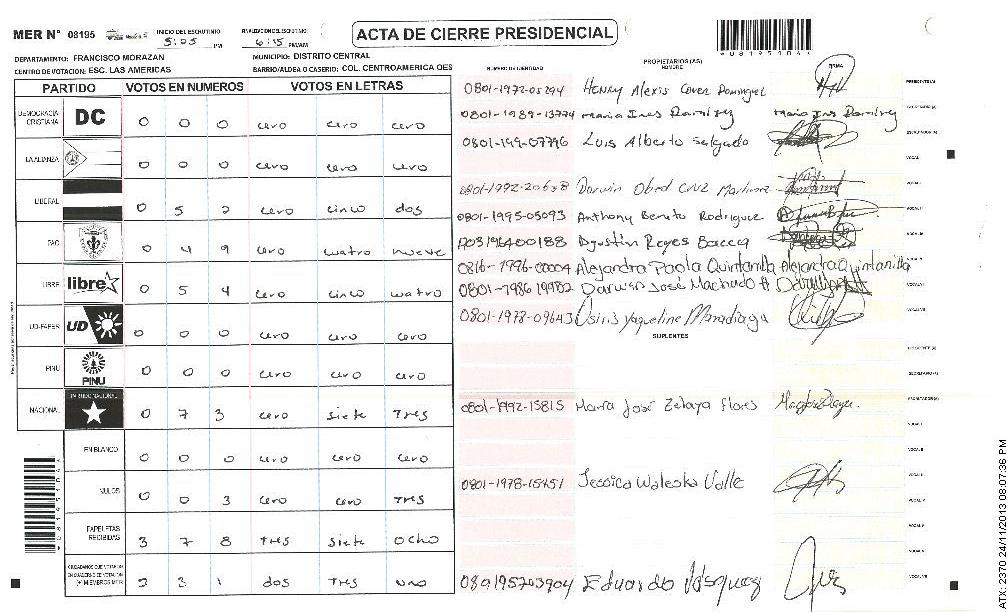 MER N° 08195
INICIO DEL ESCRUTINIO
5:25 PM
FINALIZACION DEL ESCRUTINIO
6:15 PM/AM
ACTA DE CIERRE PRESIDENCIAL
DEPARTAMENTO: FRANCISCO MORAZAN
MUNICIPIO: DISTRITO CENTRAL
CENTRO DE VOTACION: ESC. LAS AMERICAS
BARRIO/ALDEA O CASERIO: COL. CENTROAMERICA OES
PARTIDO VOTOS EN NUMEROS VOTOS EN LETRAS
DEMOCRACIA CRISTIANA DC 0 0 0 cero cero cero
LA ALIANZA 0 0 0 cero cero cero
LIBERAL 0 5 2 cero cinco dos
PAC 0 4 9 cero cuatro nueve
LIBRE libre 0 5 4 cero cinco cuatro
UD-FAPER UD 0 0 0 cero cero cero
PINU PINU 0 0 0 cero cero cero
NACIONAL PARTIDO NACIONAL 0 7 3 cero siete Tres
EN BLANCO 0 0 0 cero cero cero
NULOS 0 0 3 cero cero Tres
PAPELETAS RECIBIDAS 3 7 8 Tres siete ocho
CIUDADANOS QUE VOTARON EN CUADERNO DE VOTACION (+) MIEMBROS MER 2 3 1 dos Tres uno
PROPIETARIOS (AS)
NUMERO DE IDENTIDAD NOMBRE FIRMA
0801-1972-05294 Henry Alexis Cover Dominguez
0801-1989-13774 maria Ines Ramirez maria Ines Ramirez
Luis Alberto Salgado
0801-1992-20638 Darwin Obed Cruz Martinez
0801-1995-05093 Anthony Benito Rodriguez
Agustin Reyes Bacca
0816-1996-00004 Alejandra Paola Quintanilla Alejandra Quintanilla
0801-1986 19982 Darwin José Machado H
0801-1978-09643 Osiris Yaqueline Maradiaga
SUPLENTES
0801-1992-15815 Maria José Zelaya Flores
0801-1978-15451 Jessica Waleska Valle
Eduardo Vásquez
ATX 2370 24/11/2013 08:07:36 PM